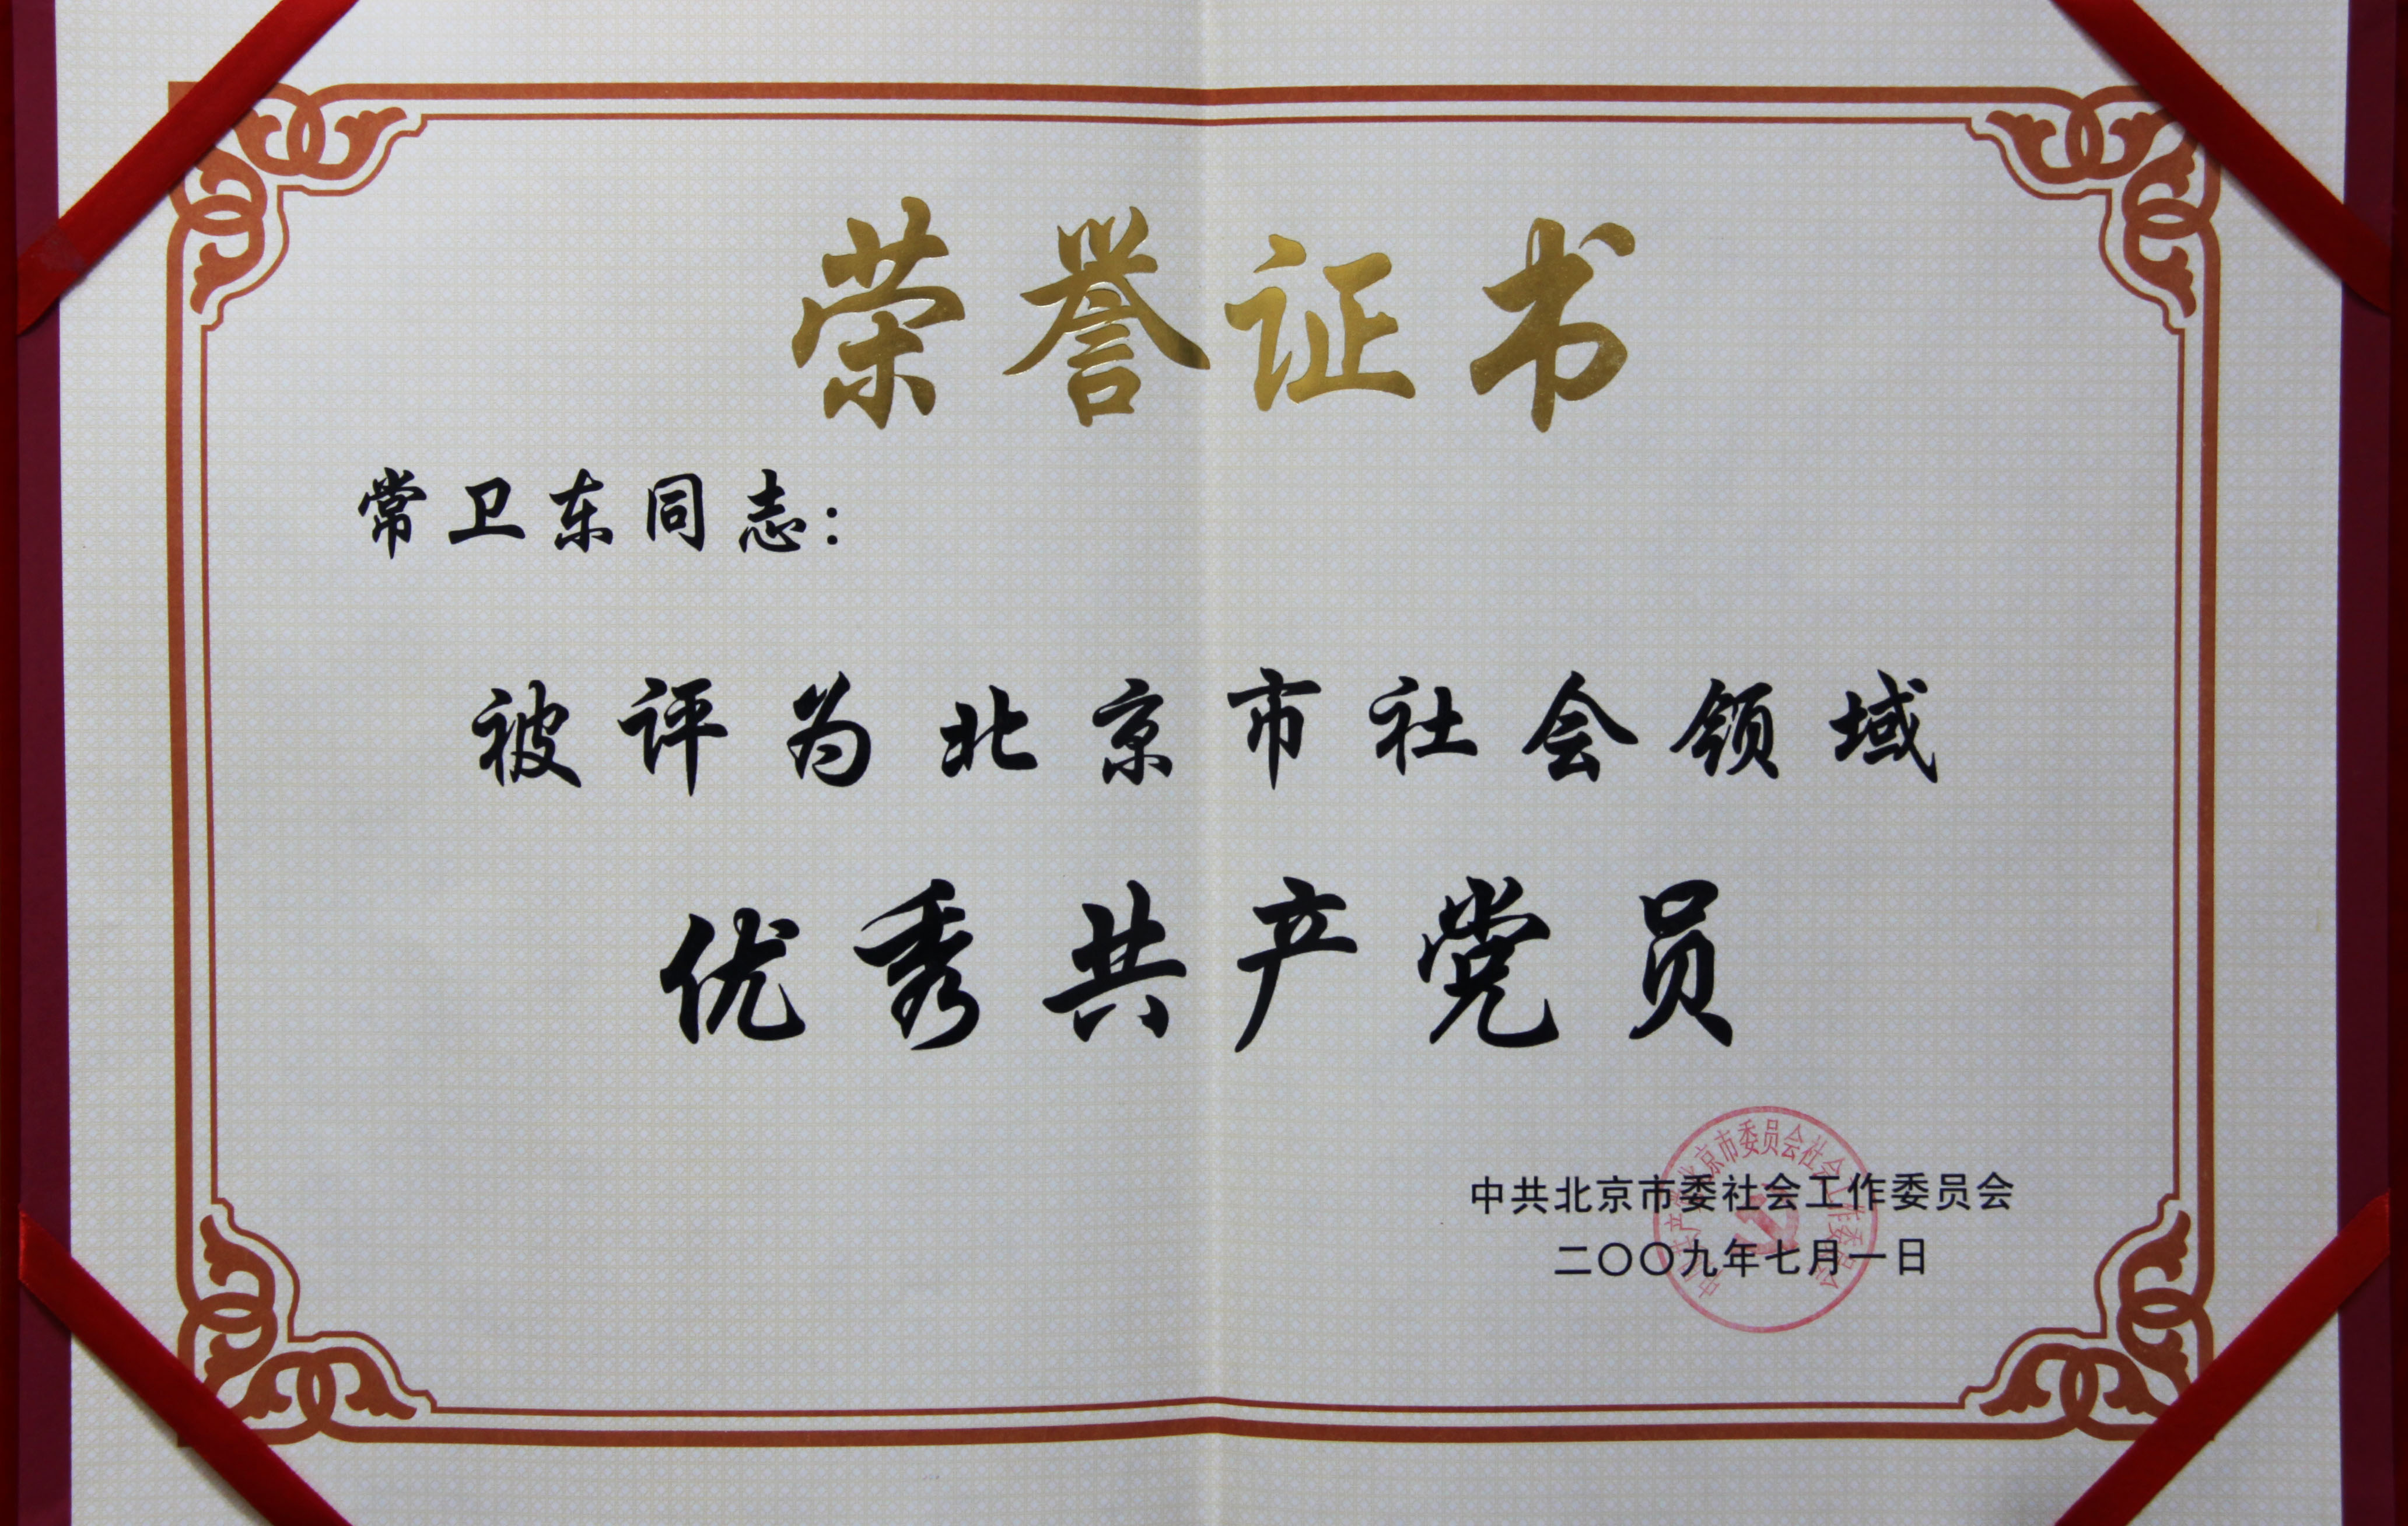 荣誉证书
常卫东同志：
被评为北京市社会领域
优秀共产党员
中共北京市委社会工作委员会
二〇〇九年七月一日
中国共产党北京市委员会社会工作委员会